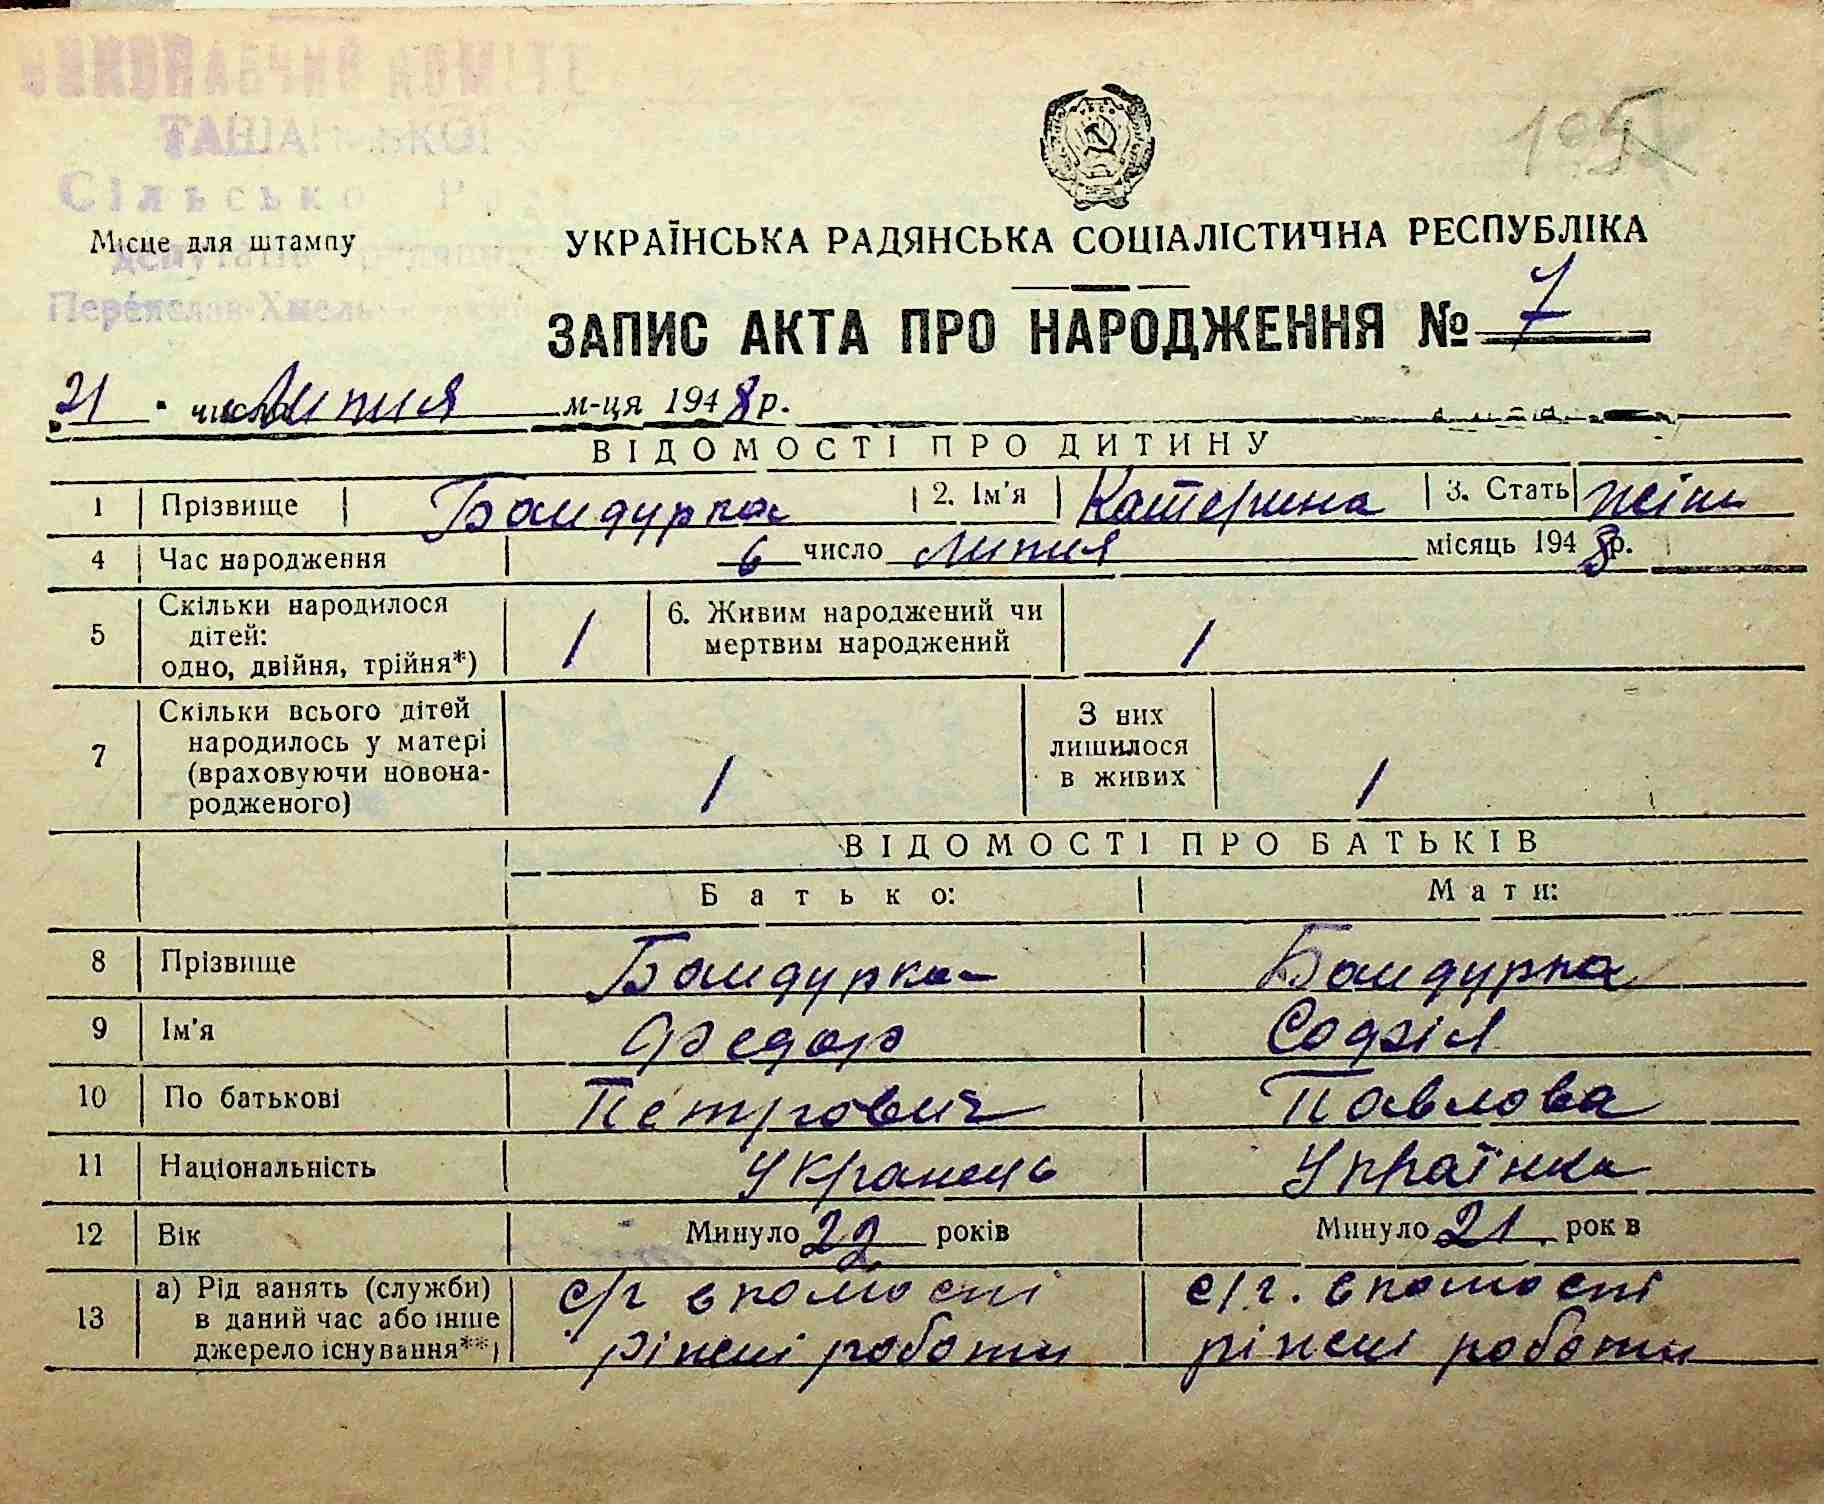 ТАШАНСЬКОЇ
Місце для штампу
УКРАЇНСЬКА РАДЯНСЬКА СОЦІАЛІСТИЧНА РЕСПУБЛІКА
ЗАПИС АКТА ПРО НАРОДЖЕННЯ № 7
21 числа Липня м-ця 1948 р.
ВІДОМОСТІ ПРО ДИТИНУ
1 Прізвище Бандурка 2. Ім'я Катерина 3. Стать жін
4 Час народження 6 число Липня місяць 1948 р.
5 Скільки народилося дітей: одно, двійня, трійня*) 1 6. Живим народжений чи мертвим народжений 1
7 Скільки всього дітей народилось у матері (враховуючи новонародженого) 1 З них лишилося в живих 1
ВІДОМОСТІ ПРО БАТЬКІВ
Батько: Мати:
8 Прізвище Бандурка Бандурка
9 Ім'я Федор Софія
10 По батькові Петрович Павлова
11 Національність Укранець Українка
12 Вік Минуло 22 років Минуло 21 років
13 а) Рід занять (служби) в даний час або інше джерело існування**) с/г в помості ріжні роботи с/г. в помості ріжні роботи